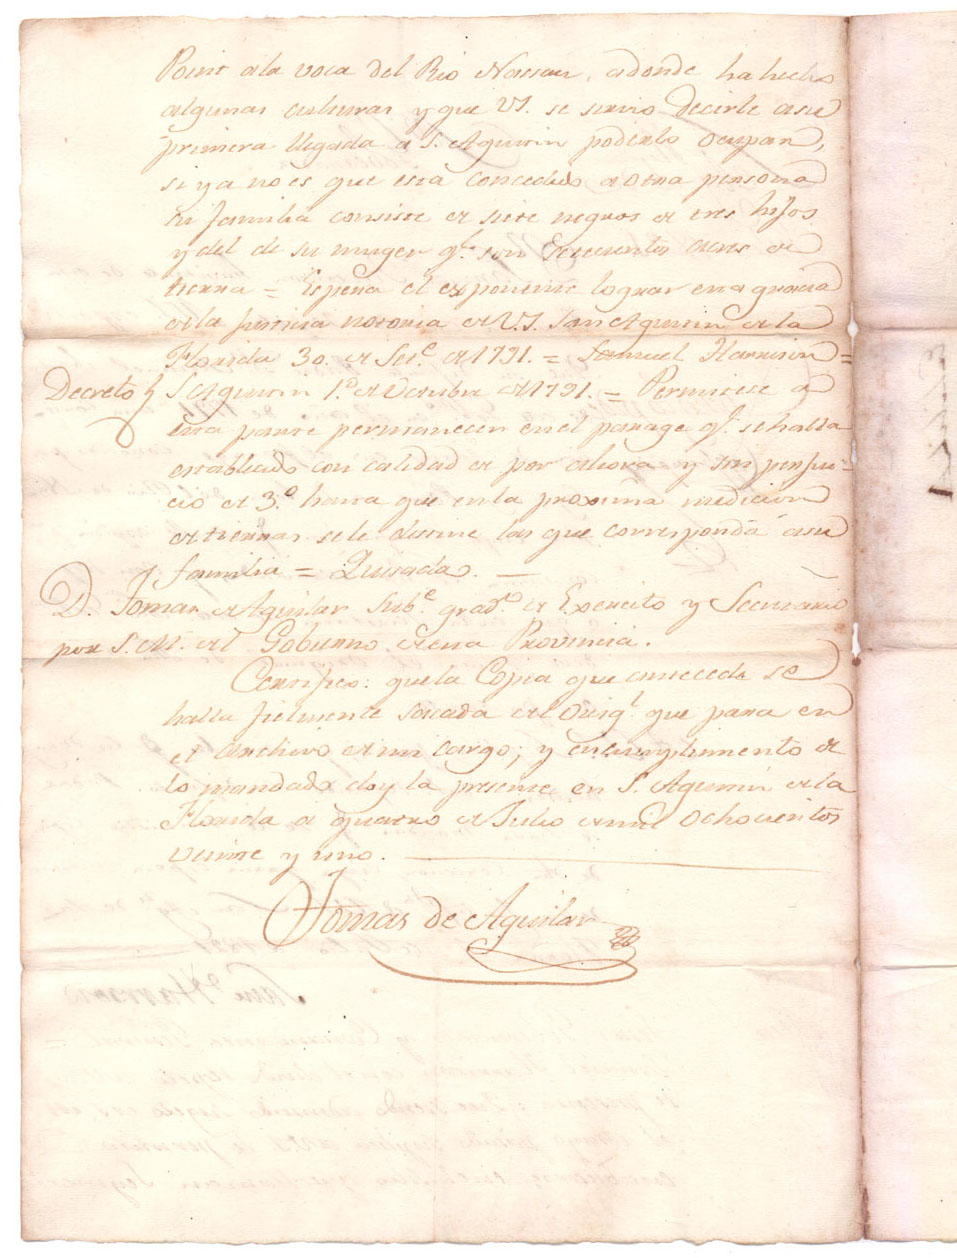 Point a la voca del Rio Nassau, adonde ha hecho
algunas culturas y que V.S. se sirvio decirle a su
primera llegada a S. Agustin poderlo ocupar,
si ya no es que está concedido a otra persona
su familia consiste de siete negros de tres hijos
y del de su muger qe. son Setecientos acres de
tierra = Espera el exponente lograr esta gracia
de la justicia notoria de V.S. San Agustin de la
Florida 30. de Sete. de 1791. = Samuel Harrison =
Decreto S. Agustin 1.o de Octubre de 1791. = Permitese a
esta parte permanecer en el parage qe. se halla
establecido con calidad de por ahora y sin perjui-
cio de 3.o hasta que en la proxima medicion
de tierras se le destine las que corresponda a su
familia = Quesada. —
D. Tomas de Aguilar Sube. grado. de Exercito y Secretario
por S.M. del Gobierno de esta Provincia.
Certifico: que la Copia que antecede se
halla fielmente sacada del Origl. que para en
el archivo de mi cargo; y en cumplimento de
lo mandado doy la presente en S. Agustin de la
Florida a quatro de Julio de mil ochocientos
veinte y uno. —
Tomas de Aguilar